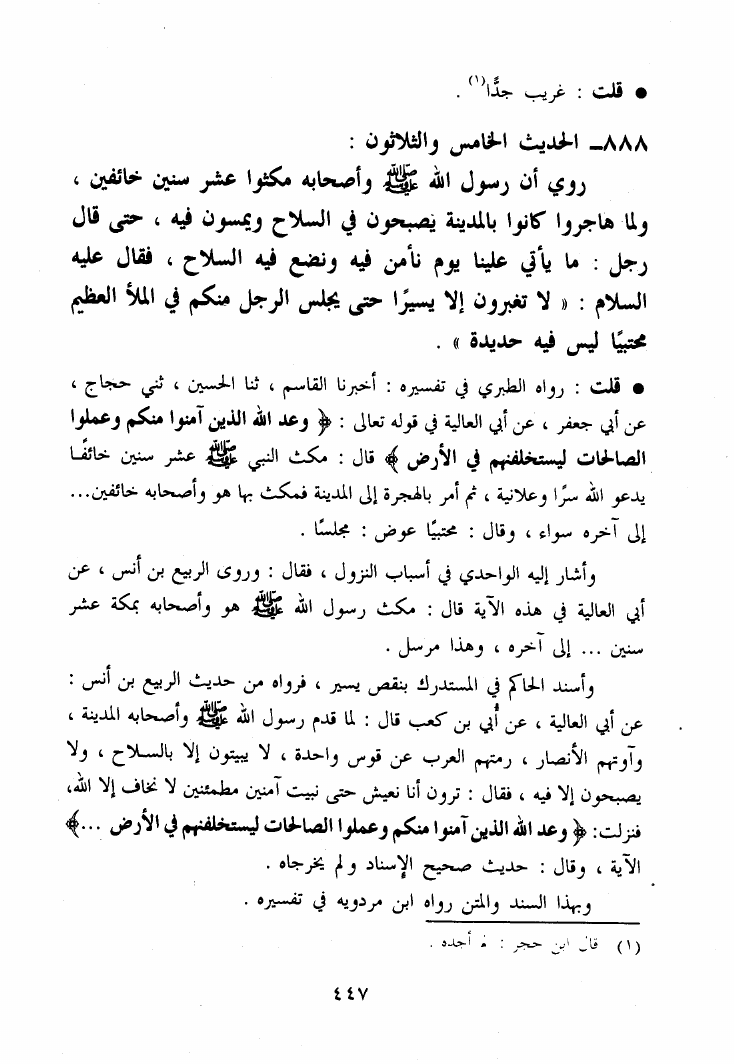 ● قلت : غريب جدًّا(١) .
٨٨٨ـ الحديث الخامس والثلاثون :
روي أن رسول الله ﷺ وأصحابه مكثوا عشر سنين خائفين ،
ولما هاجروا كانوا بالمدينة يصبحون في السلاح ويمسون فيه ، حتى قال
رجل : ما يأتي علينا يوم نأمن فيه ونضع فيه السلاح ، فقال عليه
السلام : « لا تغبرون إلا يسيرًا حتى يجلس الرجل منكم في الملأ العظيم
محتبيًا ليس فيه حديدة » .
● قلت : رواه الطبري في تفسيره : أخبرنا القاسم ، ثنا الحسين ، ثني حجاج ،
عن أبي جعفر ، عن أبي العالية في قوله تعالى : ﴿ وعد الله الذين آمنوا منكم وعملوا
الصالحات ليستخلفنهم في الأرض ﴾ قال : مكث النبي ﷺ عشر سنين خائفًا
يدعو الله سرًا وعلانية ، ثم أمر بالهجرة إلى المدينة فمكث بها هو وأصحابه خائفين...
إلى آخره سواء ، وقال : محتبيًا عوض : مجلسًا .
وأشار إليه الواحدي في أسباب النزول ، فقال : وروى الربيع بن أنس ، عن
أبي العالية في هذه الآية قال : مكث رسول الله ﷺ هو وأصحابه بمكة عشر
سنين ... إلى آخره ، وهذا مرسل .
وأسند الحاكم في المستدرك بنقص يسير ، فرواه من حديث الربيع بن أنس :
عن أبي العالية ، عن أُبي بن كعب قال : لما قدم رسول الله ﷺ وأصحابه المدينة ،
وآوتهم الأنصار ، رمتهم العرب عن قوس واحدة ، لا يبيتون إلا بالسلاح ، ولا
يصبحون إلا فيه ، فقال : ترون أنا نعيش حتى نبيت آمنين مطمئنين لا نخاف إلا الله،
فنزلت: ﴿ وعد الله الذين آمنوا منكم وعملوا الصالحات ليستخلفنهم في الأرض ...﴾
الآية ، وقال : حديث صحيح الإسناد ولم يخرجاه .
وبهذا السند والمتن رواه ابن مردويه في تفسيره .
(١) قال ابن حجر : لم أجده .
٤٤٧